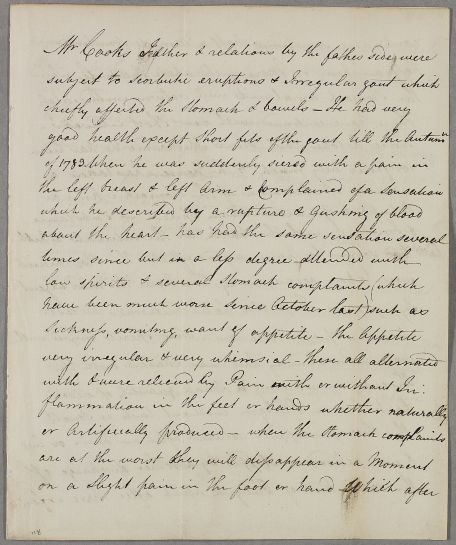 Mr Cooks Father & relations by the father side, were
subject to Scorbutic eruptions & Irregular gout which
chiefly affected the Stomach & bowels – He had very
good health except Short fits of the gout till the Autumn
of 1783. When he was suddenly seized with a pain in
the left breast & left Arm & Complained of a Sensation
which he described by a rupture & Gushing of blood
about the heart – has had the same sensation several
times since but in a less degree attended with
low spirits & several Stomach complaints (which
have been much worse since October last) such as
Sickness, vomiting, want of appetite – the Appetite
very irregular & very whimsical – these all alternated
with & were relieved by Pain with or without In:
flammation in the feet or hands whether naturally
or Artificially produced – when the Stomach complaints
are at the worst they will dissappear in a Moment
on a Slight pain in the foot or hand Which after